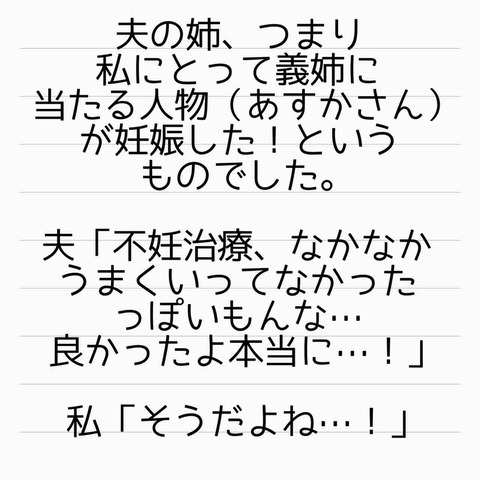 夫の姉、つまり
私にとって義姉に
当たる人物（あすかさん）
が妊娠した！という
ものでした。
夫「不妊治療、なかなか
うまくいってなかった
っぽいもんな…
良かったよ本当に…！」
私「そうだよね…！」